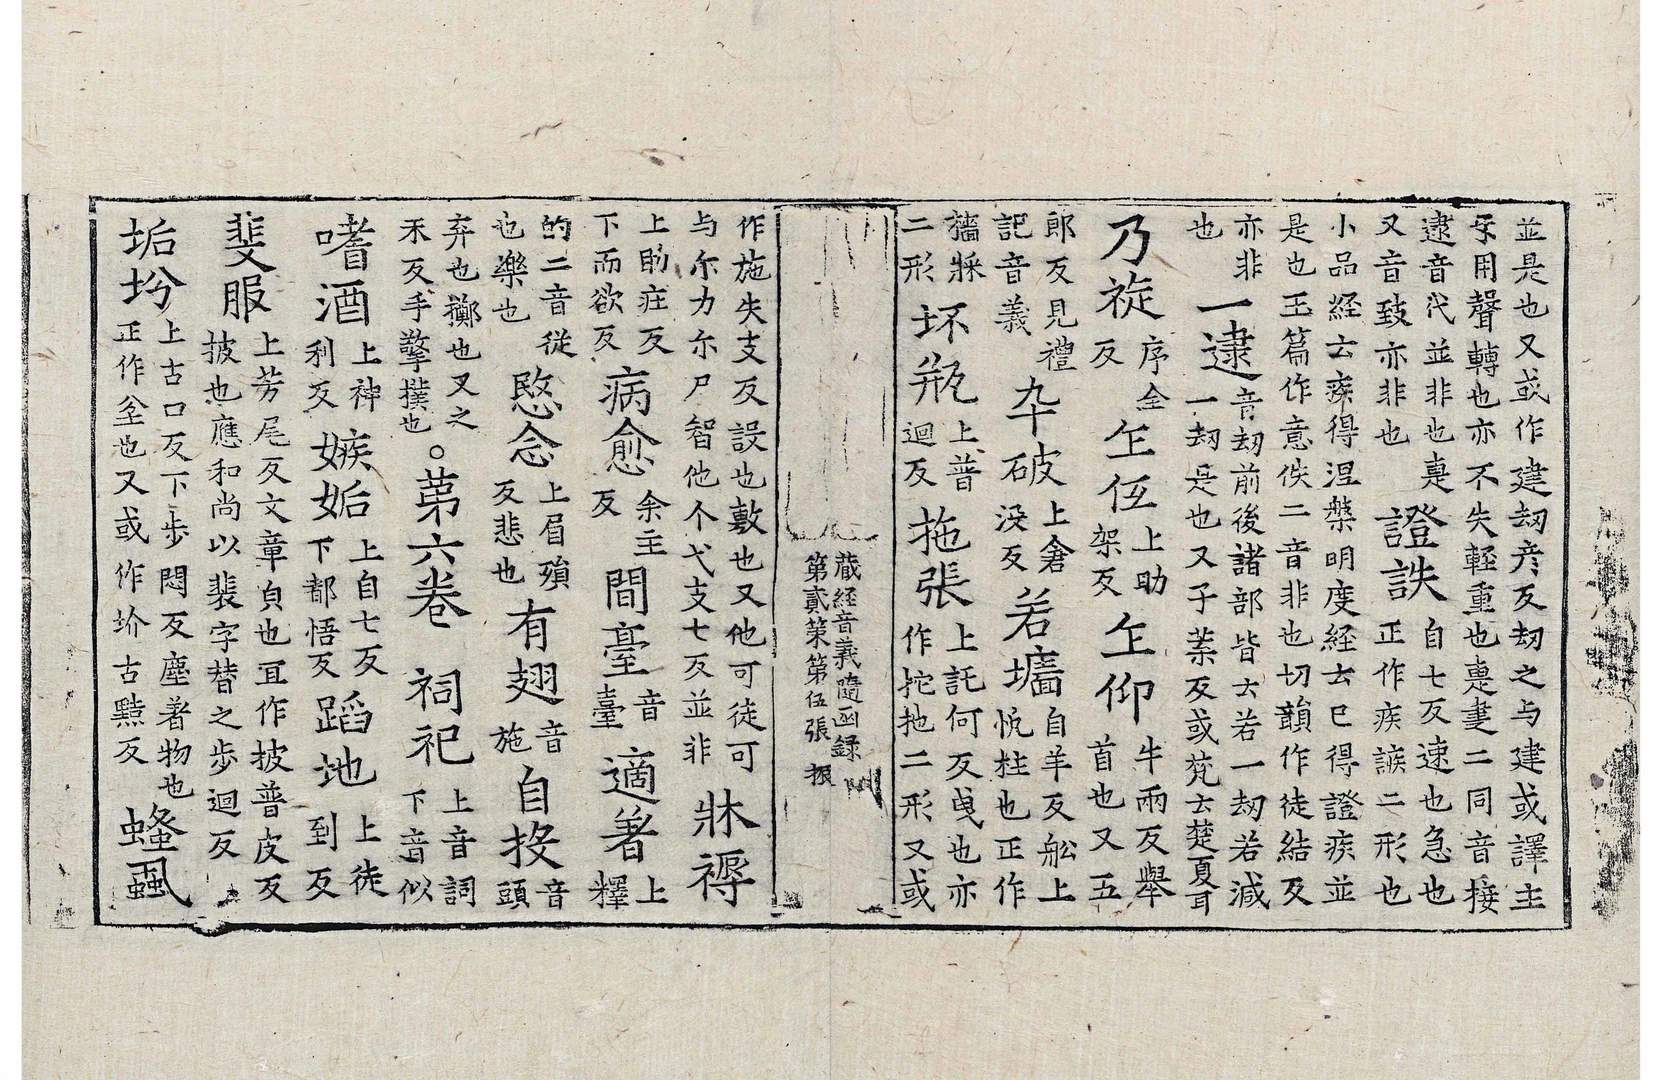 並是也又或作建刼彦反刼之与建或譯主
㸦用聲轉也亦不失輕重也疌疌二同音接
逮音代並非也疌
又音致亦非也
證詄
自七反速也急也
正作疾誺二形也
小品経云疾得涅槃明度経云已得證疾並
是也玉篇作意佚二音非也切韻作徒結反
亦非
也
一逮
音刼前後諸部皆云若一刼若減
一刼是也又子葉反或梵云楚夏耳
乃漩
序全
反
乍伍
上助
架反
乍仰
牛兩反舉
首也又五
郎反見禮
記音義
卆破
上倉
没反
若墻
自羊反舩上
帆柱也正作
牆牀
二形
坏瓶
上普
迴反
拖張
上託何反曳也亦
作拕扡二形又或
蔵経音義隨函録
第貳策第伍張 振
作施失支反設也敷也又他可徒可
与尒力尒尸智他个弋支七反並非
牀褥
上助庄反
下而欲反
病愈
余主
反
間臺
音
臺
適著
上
釋
的二音從
也樂也
愍念
上眉殞
反悲也
有翅
音
施
自投
音
頭
弃也擲也又之
禾反手擎撲也
。苐六巻
祠祀
上音詞
下音似
嗜酒
上神
利反
嫉妬
上自七反
下都悟反
蹈地
上徒
到反
斐服
上芳尾反文章皃也冝作披普皮反
披也應和尚以裴字替之步迴反
垢坋
上古口反下步悶反塵著物也
正作坌也又或作坋古㸃反
螽蝨